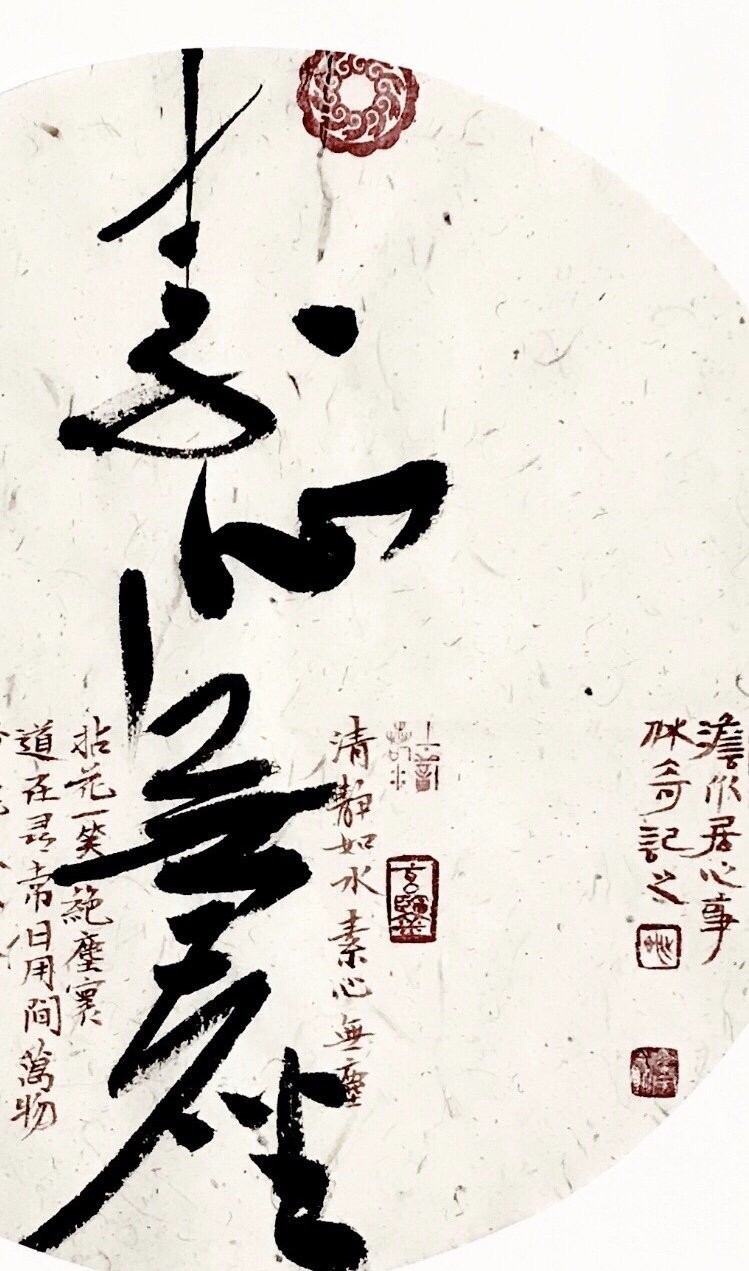 素心無塵
清靜如水 素心無塵
拈花一笑絕塵寰
道在尋常日用間 萬物
澹以居心事
休奇記之